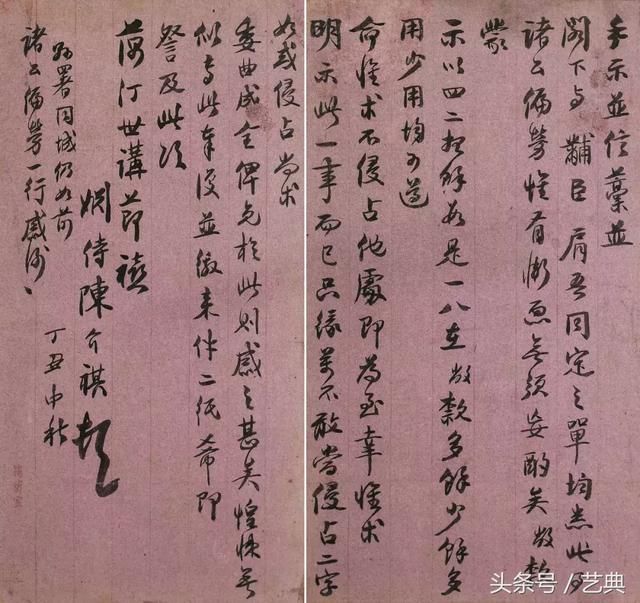 手示並信藁並
閣下与黼臣肩吾同定之單均悉此次
諸公偏勞惟有慚恧無須安酌矣敝款
蒙
示以四二捴餘數是一八在敝款多餘少餘多
用少用均可遵
命惟求不侵占他處即為至幸惟求
明示此一事而已只緣弟不敢當侵占二字
如或侵占尚求
委曲成全俾免於此則感之甚矣惶悚無
似專此奉復並繳来件二紙希即
詧及此頌
世講節禧
姻侍陳介祺頓
同城仍如前
諸公偏勞一行感謝
丁丑中秋
头条号/艺典